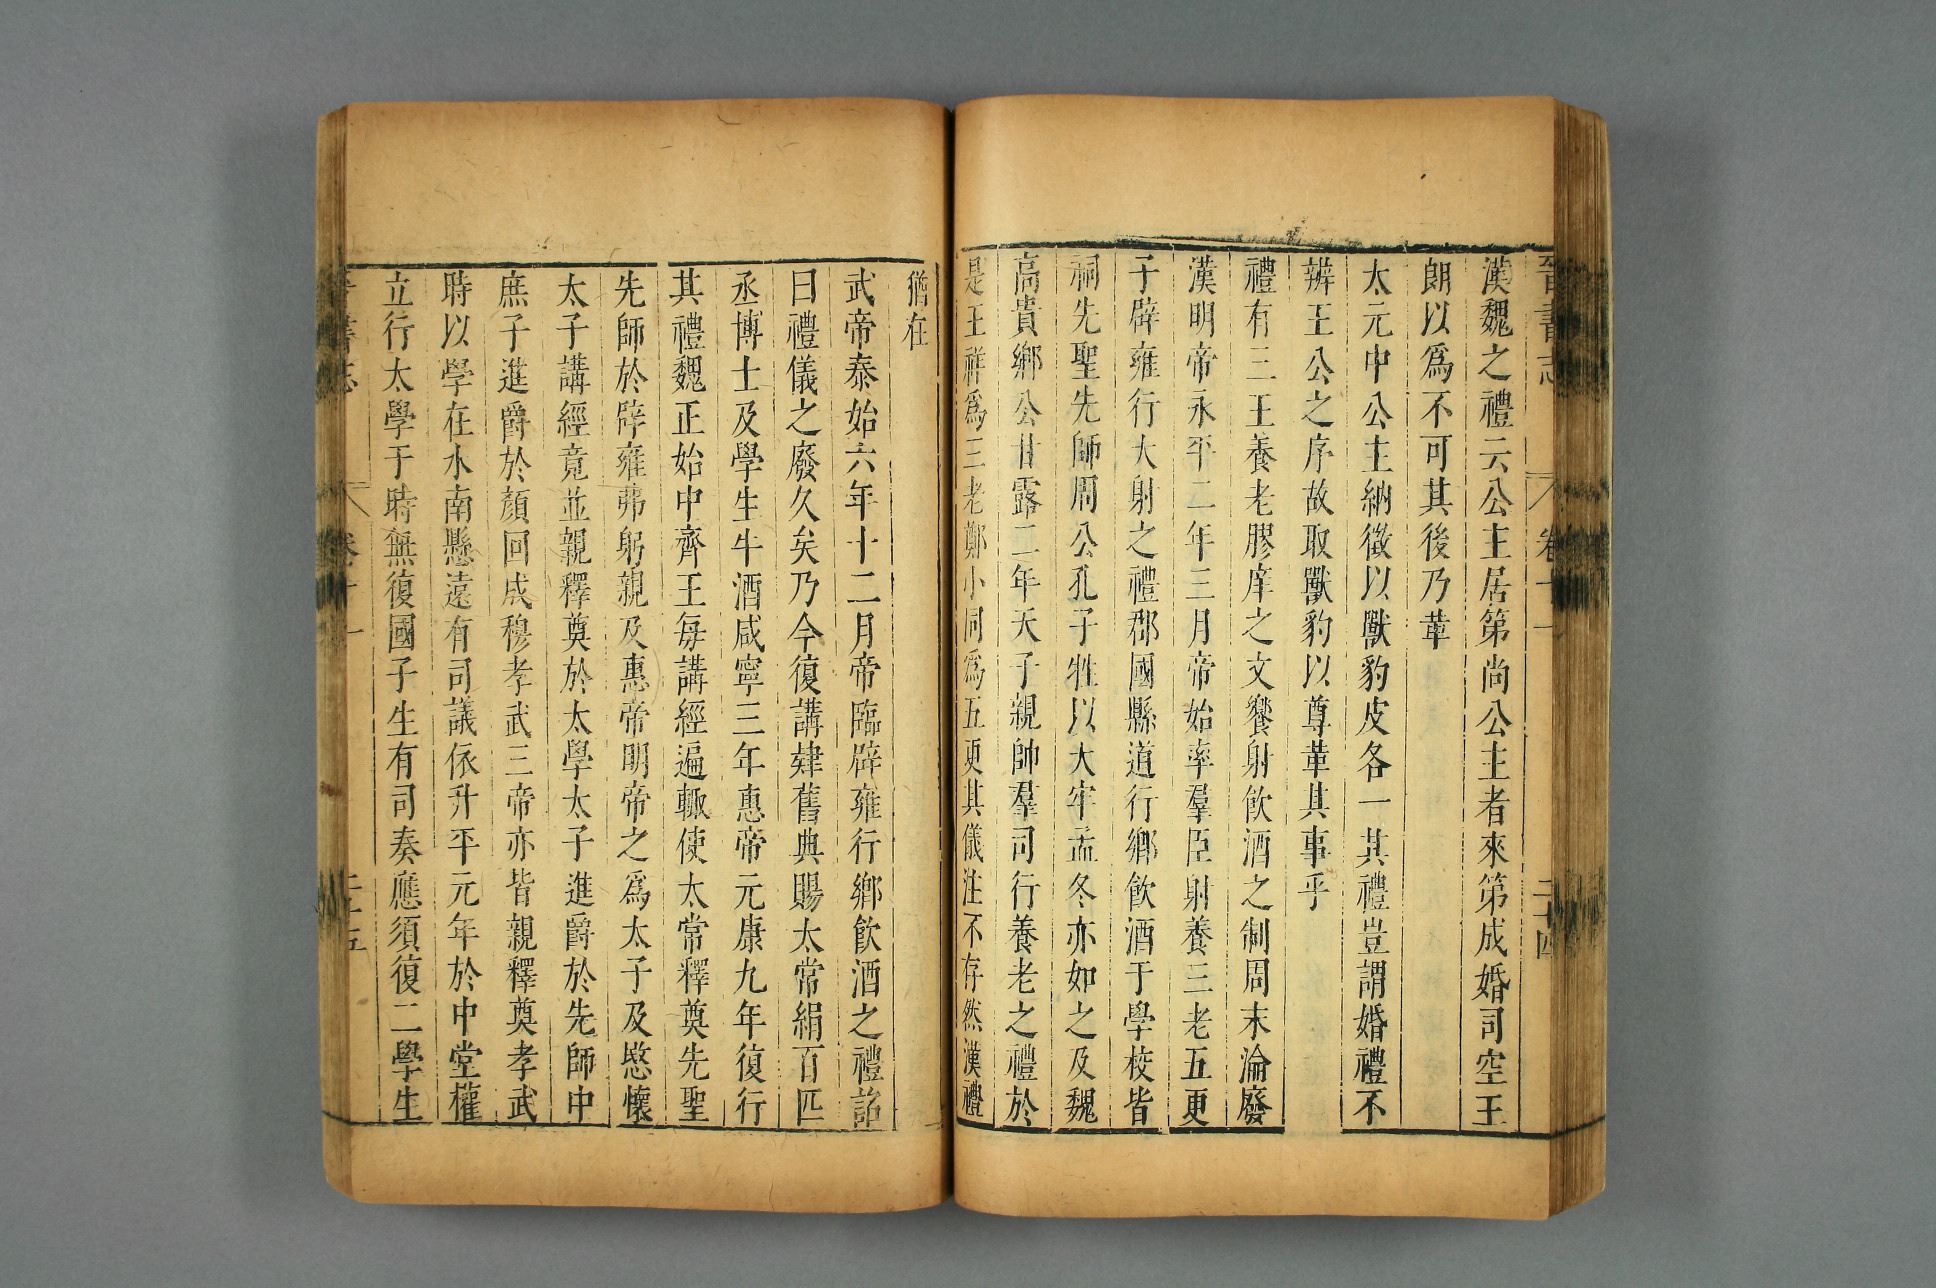 晉書志 卷十一 二十四
漢魏之禮云公主居第尚公主者來第成婚司空王
朗以爲不可其後乃革
太元中公主納徵以獸豹皮各一其禮豈謂婚禮不
辨王公之序故取獸豹以尊革其事乎
禮有三王養老膠庠之文饗射飲酒之制周末淪廢
漢明帝永平二年三月帝始率羣臣射養三老五更
于辟雍行大射之禮郡國縣道行鄉飲酒于學校皆
祠先聖先師周公孔子牲以太牢孟冬亦如之及魏
高貴鄉公甘露二年天子親帥羣司行養老之禮於
是王祥爲三老鄭小同爲五更其儀注不存然漢禮
猶在
武帝泰始六年十二月帝臨辟雍行鄉飲酒之禮詔
曰禮儀之廢久矣乃今復講肄舊典賜太常絹百匹
丞博士及學生牛酒咸寧三年惠帝元康九年復行
其禮魏正始中齊王每講經遍輙使太常釋奠先聖
先師於辟雍弗躬親及惠帝明帝之爲太子及愍懷
太子講經竟並親釋奠於太學太子進爵於先師中
庶子進爵於顏回成穆孝武三帝亦皆親釋奠孝武
時以學在水南懸遠有司議依升平元年於中堂權
立行太學于時無復國子生有司奏應須復二學生
書志 卷十一 二十五